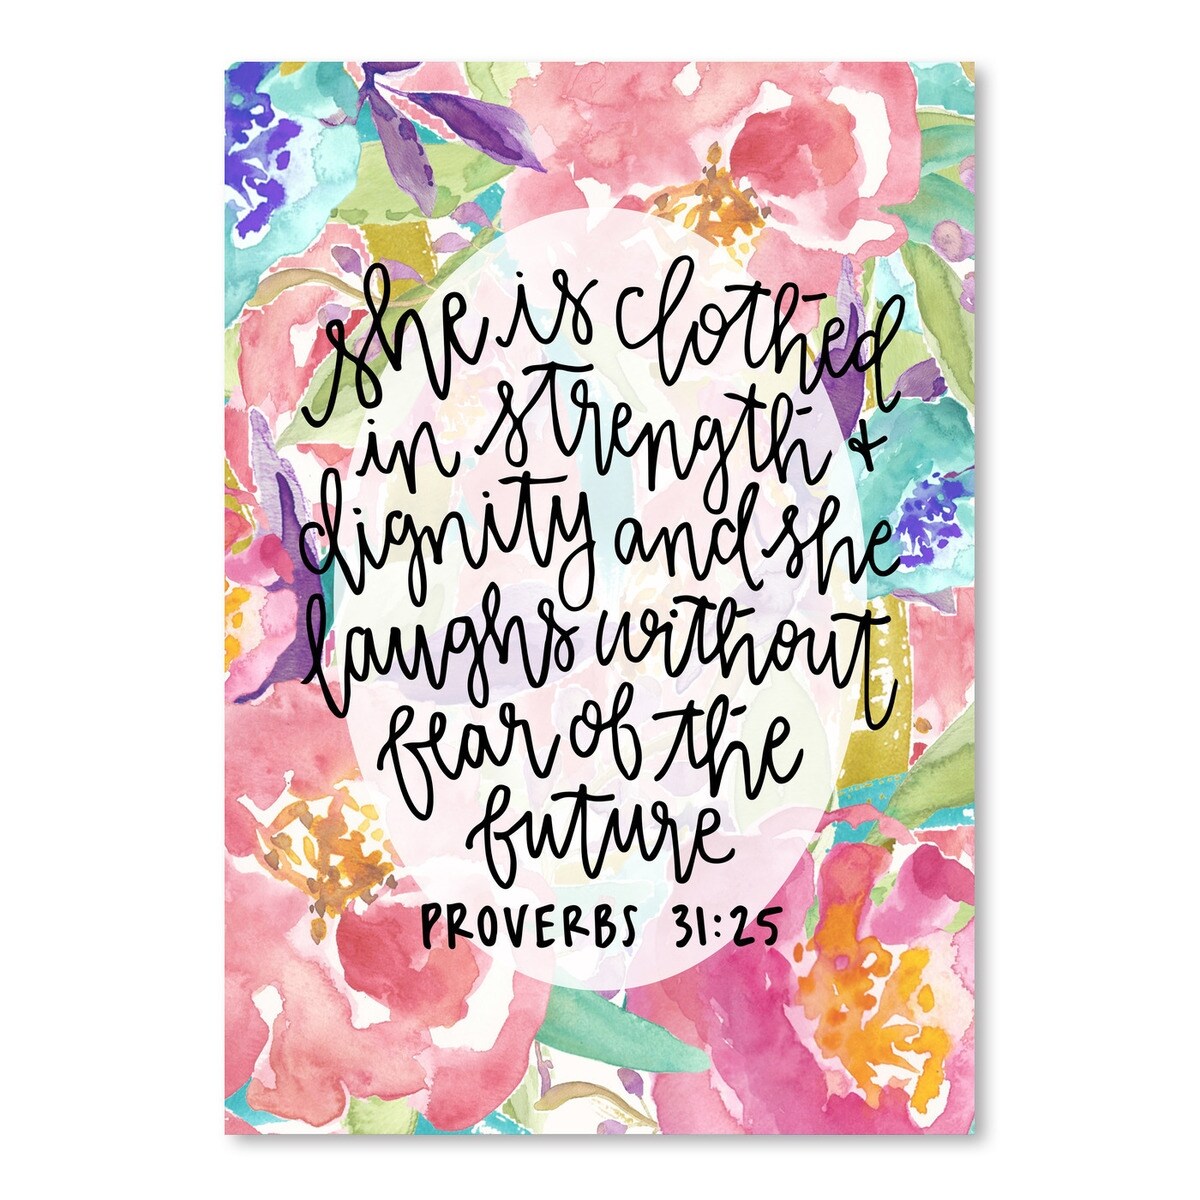 she is clothed
in strength +
dignity and she
laughs without
fear of the
future
PROVERBS 31:25